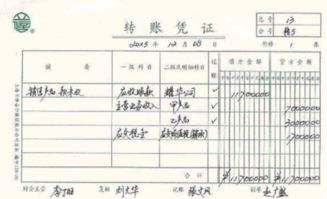 转账凭证
总号 13
分号 转5
2015年12月08日
附件 1 张
摘要 一级科目 二级及明细科目 借方金额 贷方金额
销售产品 款未收 应收账款 耀华公司 ✓ 11700000
主营业务收入 甲产品 7000000
乙产品 ✓ 3000000
应交税金 1700000
合计 ¥11700000 ¥11700000
财会主管 李丁旺 复核 刘文华 记账 张文凤 制单